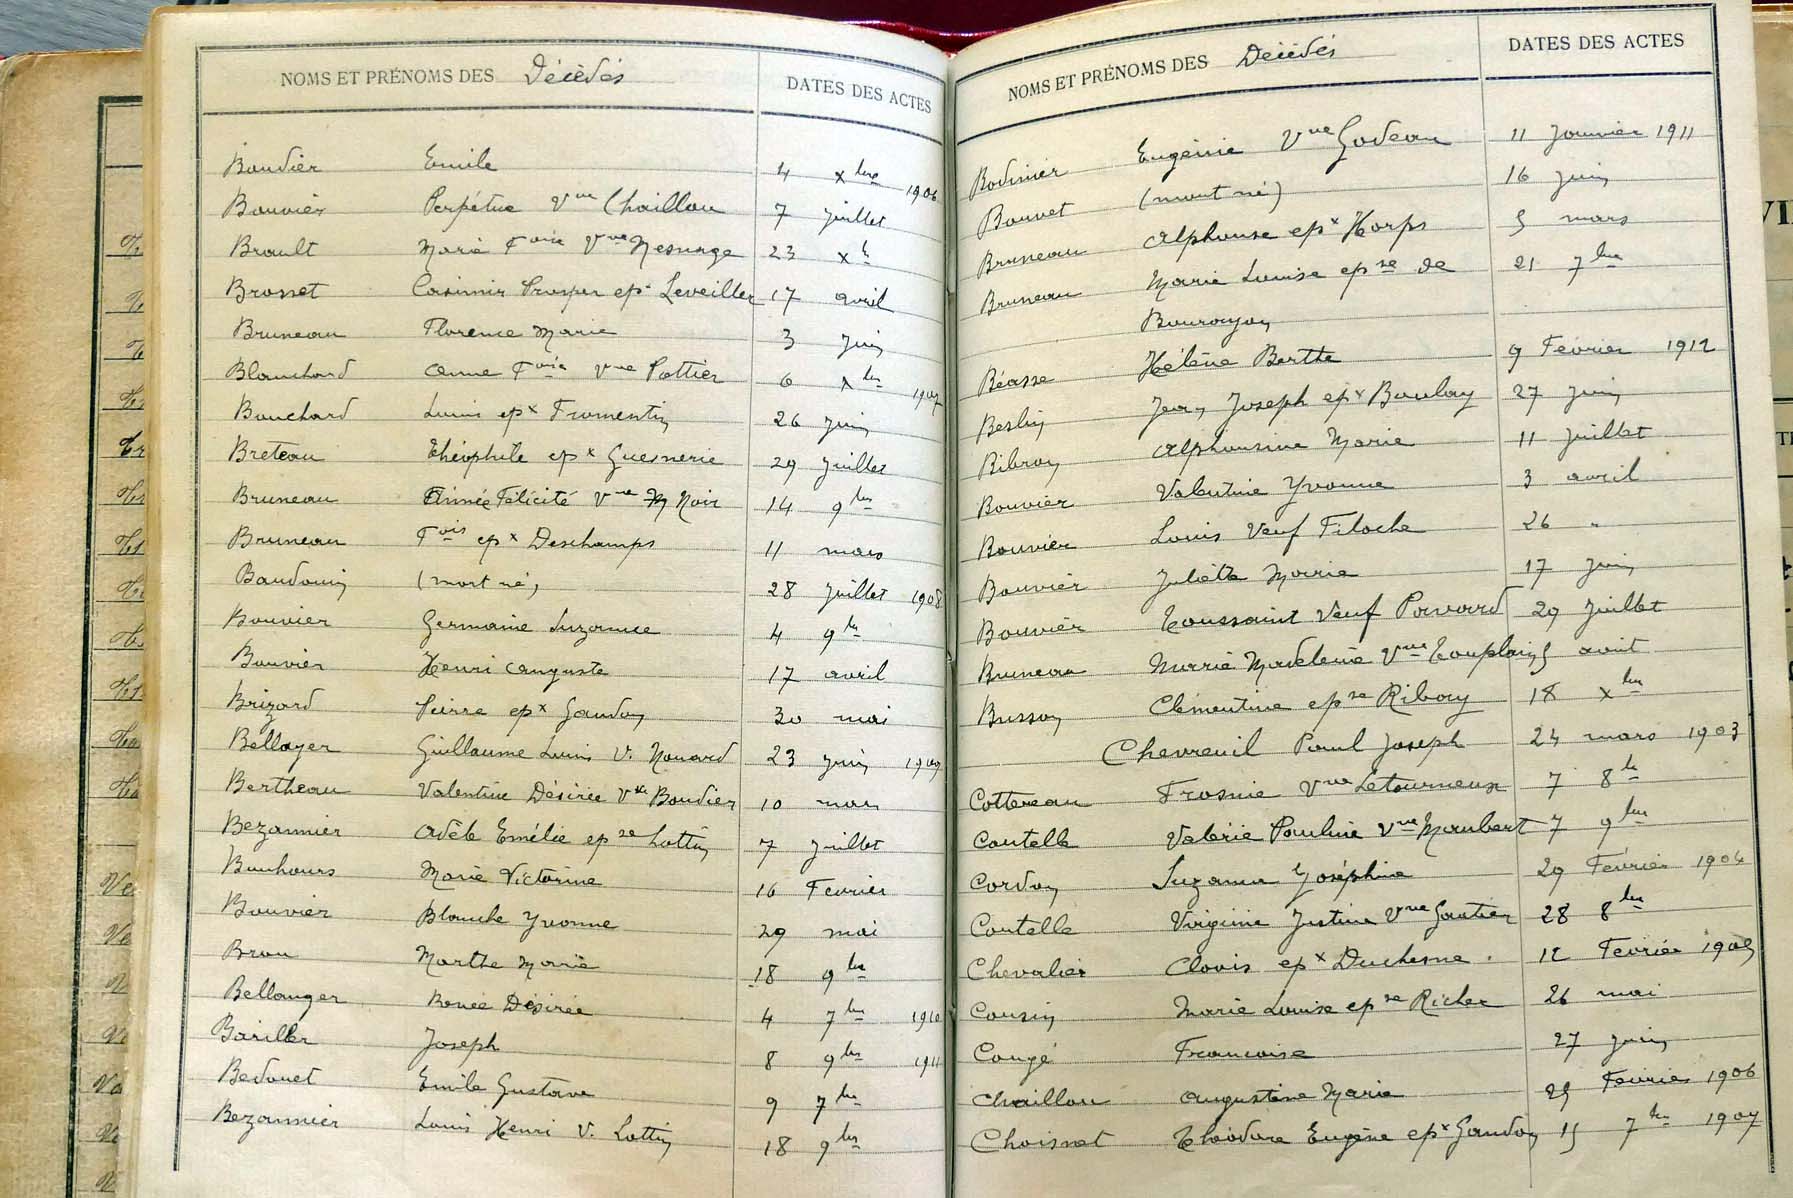 NOMS ET PRÉNOMS DES Décédés DATES DES ACTES
Boudier Emile 4 Xbre 1906
Bouvier Perpétue Vve Chaillou 7 juillet
Brault Marie Foise Vve Mesnage 23 Xb
Brosset Casimir Prosper epx Leveiller 17 avril
Bruneau Florence Marie 3 juin
Blanchard Anne Foise Vve Pottier 6 Xbre 1907
Bouchard Louis epx Fromentin 26 juin
Breteau Théophile epx Guesnerie 29 juillet
Bruneau Aimée Félicité Vve Noir 14 9bre
Bruneau Fois epx Deschamps 11 mars
Baudouin (mort né) 28 juillet 1908
Bouvier Germaine Suzanne 4 9bre
Bouvier Henri Auguste 17 avril
Brizard Pierre epx Gandon 30 mai
Bellayer Guillaume Louis V. Nouard 23 juin 1909
Bertheau Valentine Désirée Vve Boudier 10 mars
Bezannier Adèle Emélie epse Lottin 7 juillet
Bouhours Marie Victorine 16 Fevrier
Bouvier Blanche Yvonne 29 mai
Brou Marthe Marie 18 9bre
Bellanger Renée Désirée 4 7bre 1910
Bariller Joseph 8 9bre 1911
Bedouet Emile Gustave 9 7bre
Bezannier Louis Henri V. Lottin 18 9bre
NOMS ET PRÉNOMS DES Décédés DATES DES ACTES
Bodinier Eugénie Vve Godeau 11 Janvier 1911
Bouvet (mort né) 16 juin
Bruneau Alphonse epx Horps 5 mars
Bruneau Marie Louise epse de 21 7bre
Bourougon
Béasse Hélène Berthe 9 Fevrier 1912
Beslin Jean Joseph epx Boulay 27 juin
Ribron Alphonsine Marie 11 juillet
Bouvier Valentine Yvonne 3 avril
Bouvier Louis Veuf Filoche 26 "
Bouvier Juliette Marie 17 juin
Bouvier Toussaint Veuf Pavard 29 juillet
Bruneau Marie Madeleine Vve Touplain 5 août
Busson Clémentine epse Ribay 18 Xbre
Chevreuil Paul Joseph 24 mars 1903
Cottereau Frosnie Vve Letourneux 7 8bre
Coutelle Valérie Pauline Vve Maubert 7 9bre
Cordon Suzanne Joséphine 29 Février 1904
Coutelle Virginie Justine Vve Gautier 28 8bre
Chevalier Clovis epx Duchesne 12 Fevrier 1905
Cousin Marie Louise epse Richer 26 mai
Cougé Francoise 27 juin
Chaillou Augustine Marie 25 Fevrier 1906
Choisnet Théodore Eugène epx Gandon 15 7bre 1907